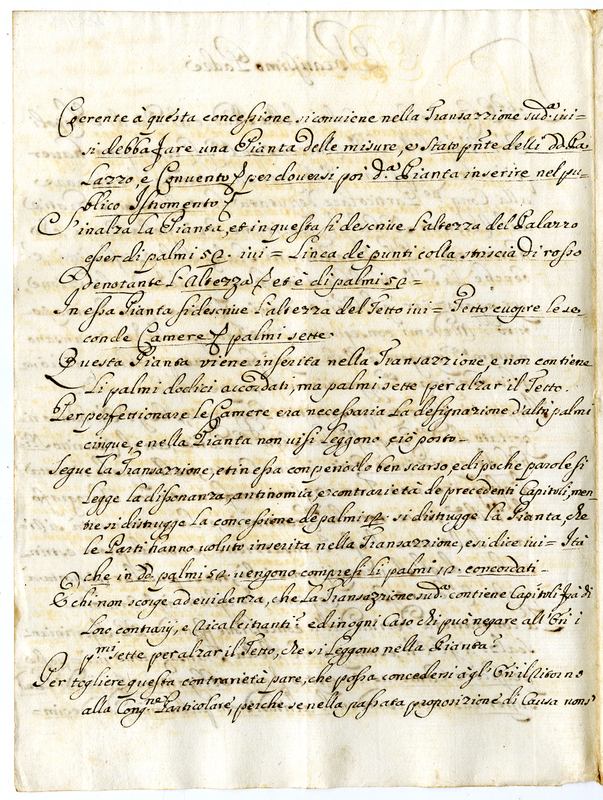 Coerente à questa concessione si conviene nella Transazzione sud.ª ivi=
si debba fare una Pianta delle misure, e stato pn̄te delli dd. Pa-
lazzo, e Convento p̱ per doversi poi d.ª Pianta inserire nel pu-
blico Istromento p̱
S'inalza la Pianta, et in questa si descrive l'altezza del Palazzo
esser di palmi 52. ivi = Linea de punti colla striscia di rosso
denotante l'Altezza p̱ et è di palmi 52 =
In essa Pianta si descrive l'altezza del Tetto ivi = Tetto cuopre le se-
conde Camere p̱ palmi sette.
Questa Pianta viene inserita nella Transazzione, e non contiene
li palmi dodici accordati, ma palmi sette per alzar il Tetto.
Per perfettionare le Camere era necessaria la designazione d'altri palmi
cinque, e nella Pianta non vi si leggono, ciò posto-
Segue la Transazzione, et in essa con periodo ben scarso, e di poche parole si
legge la dissonanza, antinomia, e contrarietà de precedenti Capitoli, men-
tre si distrugge la concessione de palmi 12. si distrugge la Pianta, che
le Parti hanno voluto inserita nella Transazzione, e si dice ivi= Ità
che in dd. palmi 52. vengono compresi li palmi 12. concordati-
E chi non scorge ad evidenza, che la Transazzione sud.ª contiene Capitoli frà di
loro contrarij, e ricalcitranti? ed in ogni Caso chi può negare all' i
p.mi sette per alzar il Tetto, che si leggono nella Pianta?
Per togliere questa contrarietà pare, che possa concedersi à gl' il ritorno
alla Cong.ne Particolare, perche se nella passata proposizione di Causa non